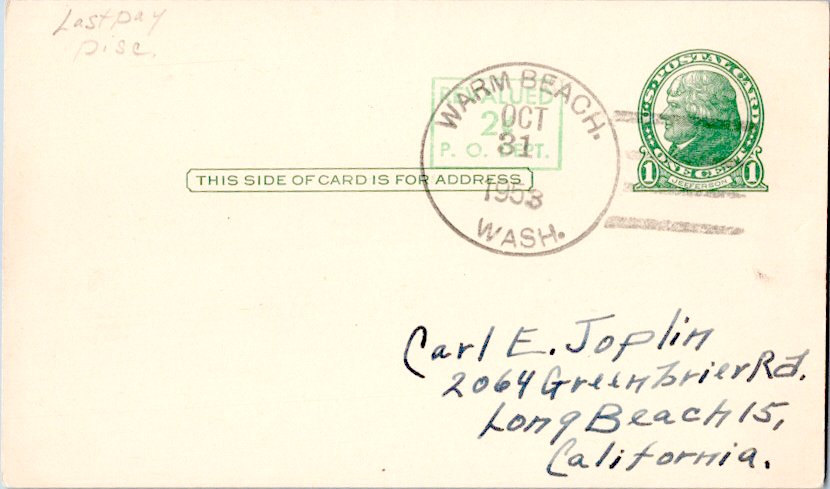 Last Day
Disc.
REVALUED
2¢
P. O. DEPT.
WARM BEACH.
OCT
31
1953
WASH.
U.S. POSTAL CARD
ONE CENT
1 JEFFERSON 1
THIS SIDE OF CARD IS FOR ADDRESS
Carl E. Joplin
2064 Greenbrier Rd.
Long Beach 15,
California.